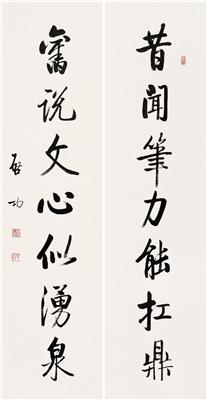 昔闻筆力能扛鼎
旧说文心似湧泉
启功